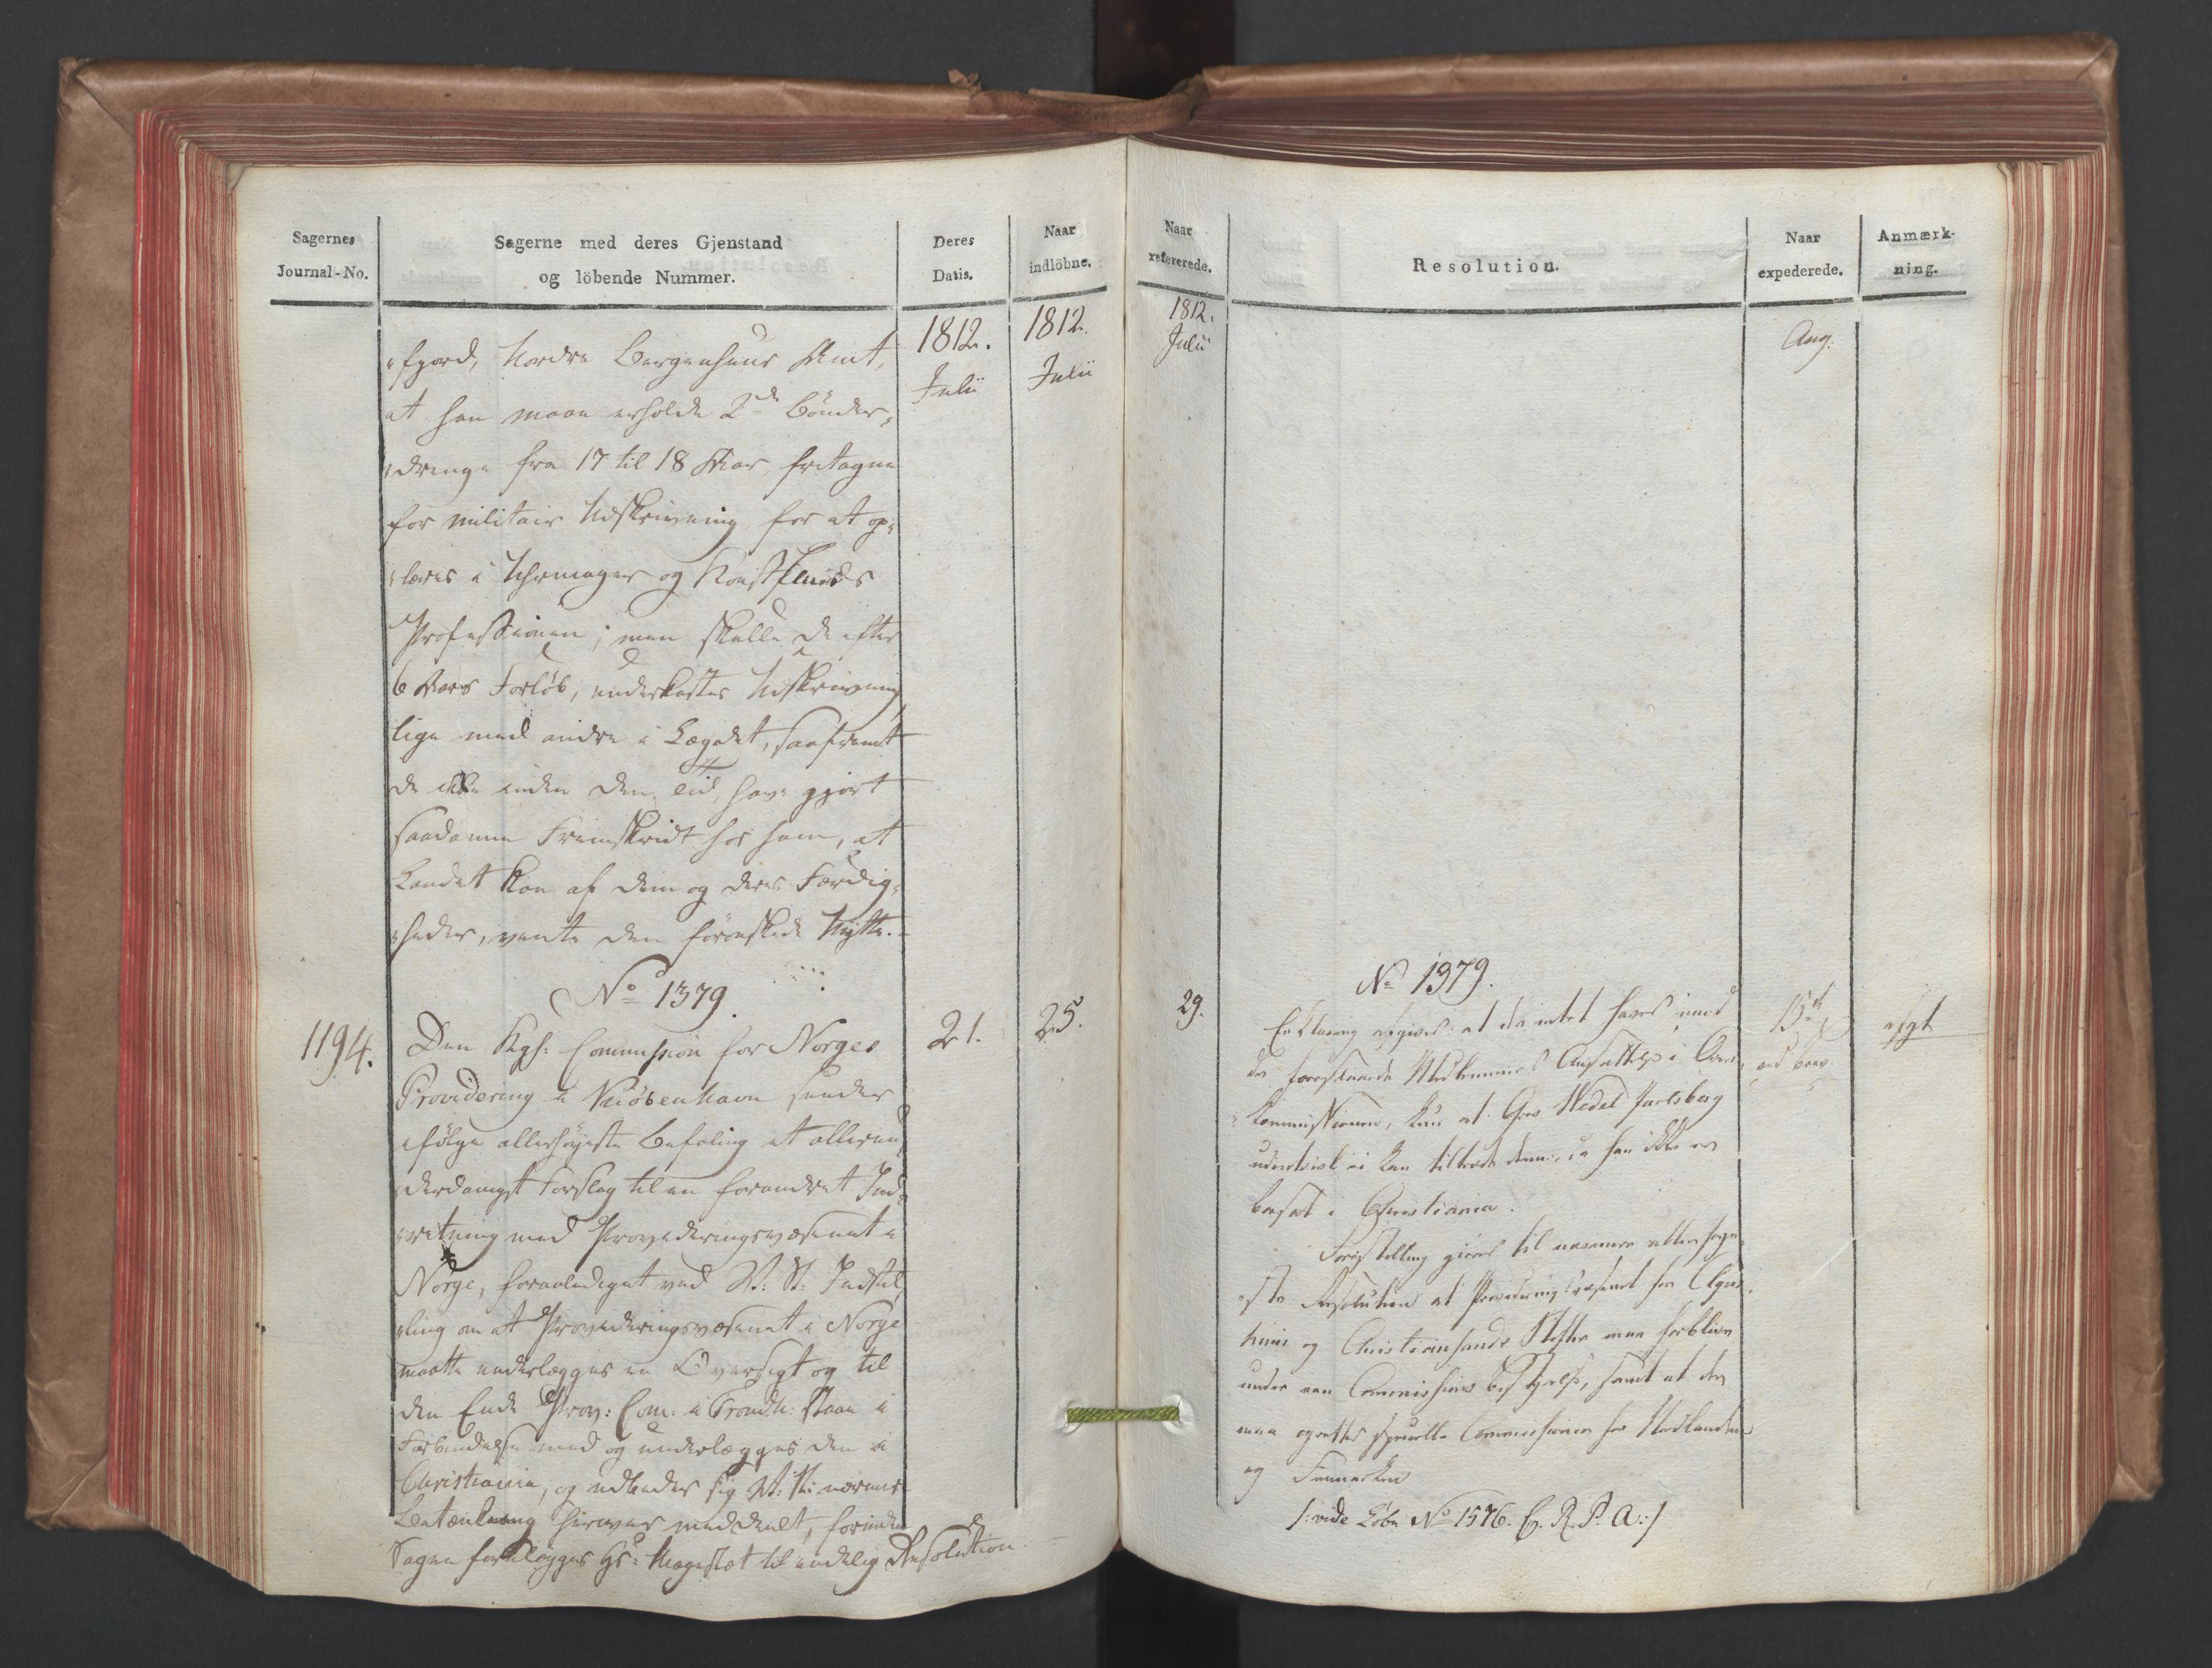 Sagernes
Journal-No.
Sagerne med deres Gjenstand
og löbende Nummer.
Deres
Datis.
Naar
indlöbne.
1812.
Julii
1812.
Julii
fjord, Nordre Bergenhuus Amt,
at han maae erholde 2de Bönder-
drenge fra 17 til 18 Aar fritagne
for militair Udskrivning for at op-
læres i Uhrmager og Konstsmids
Professionen; men skulle de efter
6 Aars Forløb, underkastes Udskrivning
lige med andre i Lægdet, saafremt
de ikke inden den Tid, have gjort
saadanne Fremskridt hos ham, at
Landet kan af dem og deres Færdig-
heder, vente den forönskede Nytte.
No 1379.
1194.
Den Kgl: Commission for Norges
Providering i Kiöbenhavn sender
ifölge allerhöjeste Befaling et allerun-
derdanigst Forslag til en forandret Ind-
retning med Provideringsvæsenet i
Norge, foranlediget ved V: St: Indstil-
ling om at Provideringsvæsenet i Norge
maatte underlægges en Oversigt og til
den Ende Prov: Com: i Trondh: staae i
Forbindelse med og underlægges den i
Christiania, og udbeder sig V: St: nærmere
Betænkning herover meddeelt, forinden
Sagen forelægges Hs: Majestæt til endelig Resolution.
21.
25.
Naar
refererede.
Resolution.
Naar
expederede.
Anmærk-
ning.
1812.
Julii
Aug:
29.
No 1379.
Erklæring afgives: at da intet haves imod
de foreslaaede Medlemmers Ansættelse i
Commissionen, kun at Grev Wedel Jarlsberg
ei kan tiltræde denne, da han ikke er
bosat i Christiania.
Forestilling giøres til nærmere allerhöje-
ste Resolution at Provideringsvæsenet for Agers-
huus og Christiansands Stifter maa forblive
under een Commissions Bestyrelse, samt at der
maa oprettes specielle Commissioner for Nordlandene
og Finmarken
/: vide Löbe No 1576. C. R. P. A :/
15de
afgt